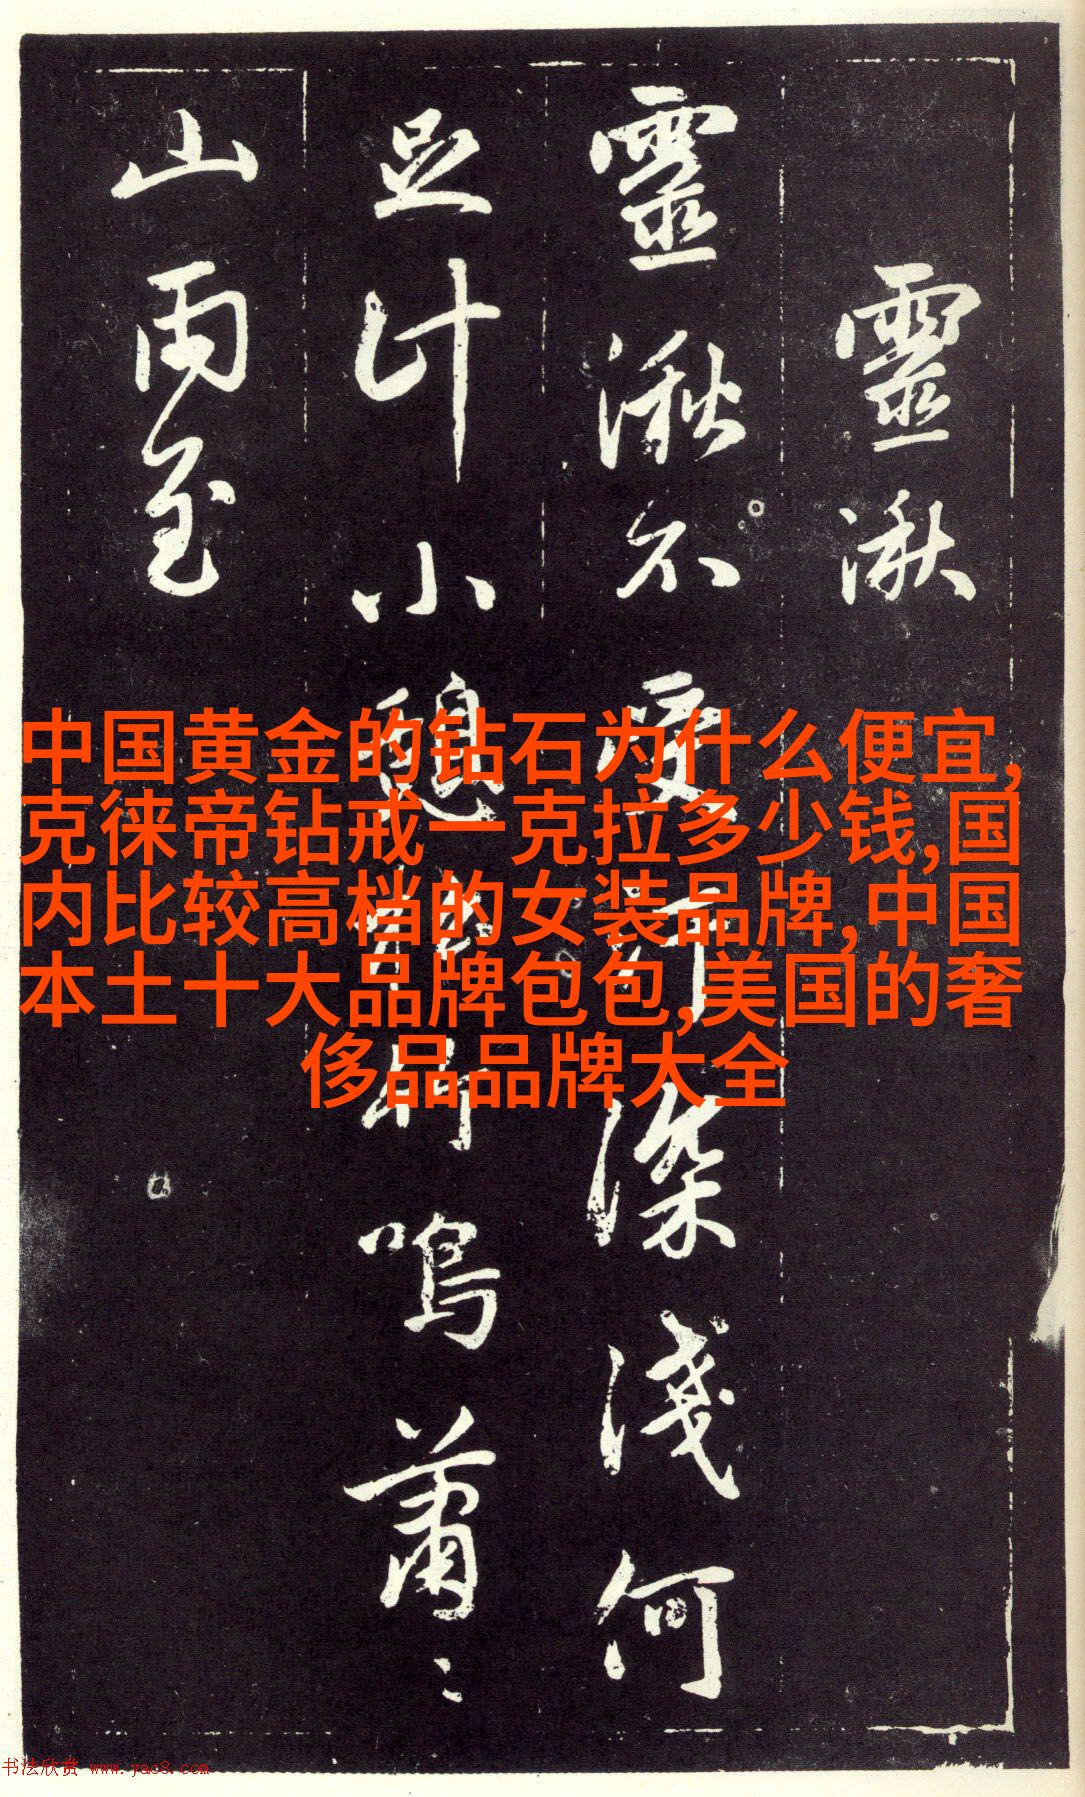 靈湫
靈湫不受汙深淺何
足計小憩聽竹鳴蕭〻
山雨至
中国黄金的钻石为什么便宜,
克徕帝钻戒一克拉多少钱,国
内比较高档的女装品牌,中国
本土十大品牌包包,美国的奢
侈品品牌大全
书法欣赏 www.yac8.com